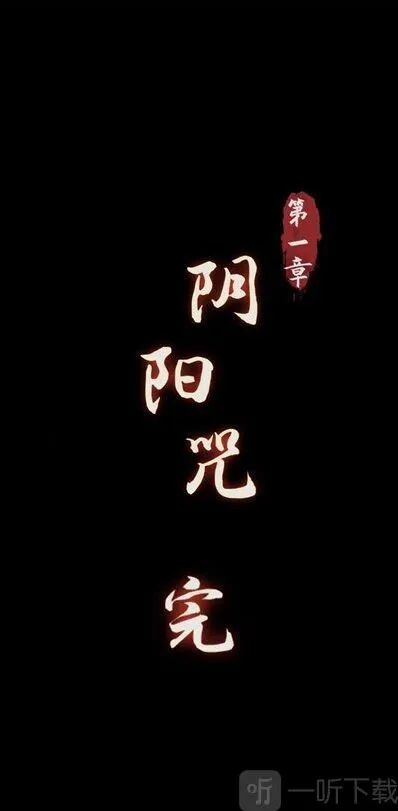 第一章
阴阳咒
完
一听下载